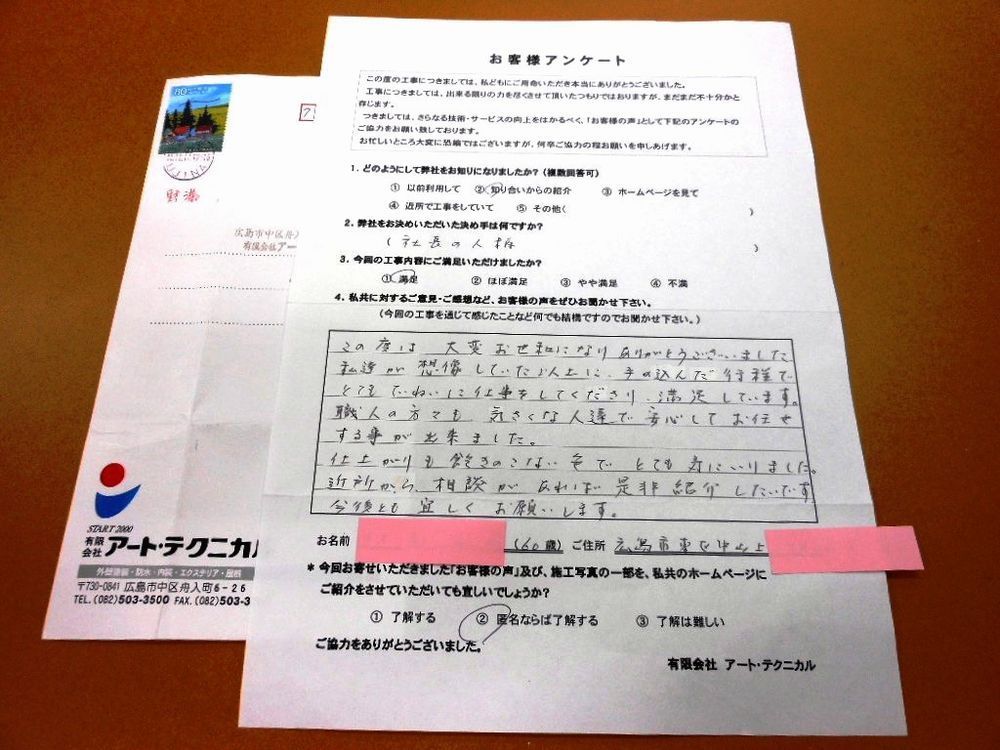 お客様アンケート
この度の工事につきましては、私どもにご用命いただき本当にありがとうございました。
工事につきましては、出来る限りの力を尽くさせて頂いたつもりではありますが、まだまだ不十分かと
存じます。
つきましては、さらなる技術・サービスの向上をはかるべく、「お客様の声」として下記のアンケートの
ご協力をお願い致しております。
お忙しいところ大変に恐縮ではございますが、何卒ご協力の程お願いを申しあげます。
1. どのようにして弊社をお知りになりましたか?(複数回答可)
① 以前利用して ② 知り合いからの紹介 ③ ホームページを見て
④ 近所で工事をしていて ⑤ その他( )
2. 弊社をお決めいただいた決め手は何ですか?
( 社長の人柄 )
3. 今回の工事内容にご満足いただけましたか?
① 満足 ② ほぼ満足 ③ やや満足 ④ 不満
4. 私共に対するご意見・ご感想など、お客様の声をぜひお聞かせ下さい。
(今回の工事を通じて感じたことなど何でも結構ですのでお聞かせ下さい。)
この度は 大変お世話になりありがとうございました
私達が想像していた以上に、手の込んだ行程で
とてもていねいに仕事をしてくださり、満足しています。
職人の方々も 気さくな人達で 安心してお任せ
する事が出来ました。
仕上がりも飽きのこない色で とても気にいりました。
近所から、相談があれば是非紹介したいです
今後とも宜しくお願いします。
お名前 (60歳) ご住所 広島市東区中山上
* 今回お寄せいただきました「お客様の声」及び、施工写真の一部を、私共のホームページに
ご紹介をさせていただいても宜しいでしょうか?
① 了解する ② 匿名ならば了解する ③ 了解は難しい
ご協力をありがとうございました。
有限会社 アート・テクニカル
80
7
広島市中区舟
有限会社アー
START 2000
有限会社 アート・テクニカル
外壁塗装・防水・内装・エクステリア・屋根
〒730-0841 広島市中区舟入町6-26
TEL.(082)503-3500 FAX.(082)503-3